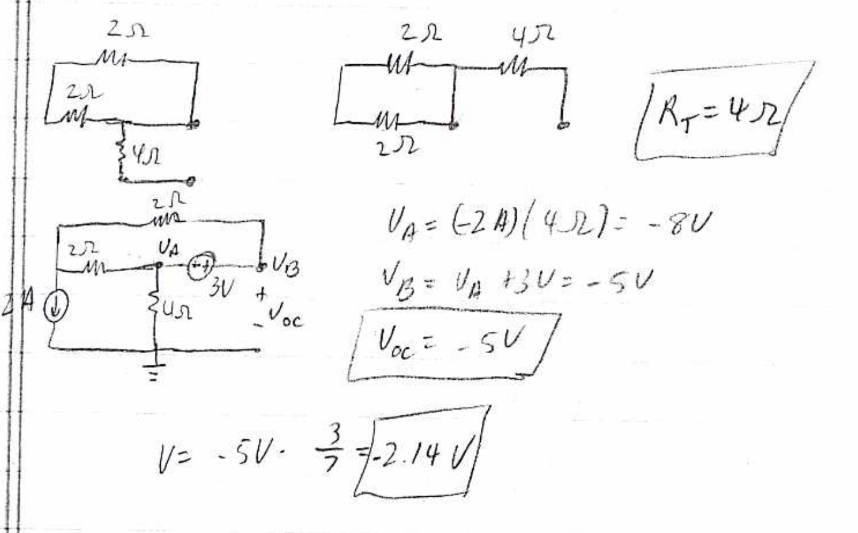 2Ω
2Ω
4Ω
2Ω 4Ω
2Ω
R_T = 4Ω
2Ω
2Ω V_A V_B
3V
2A 4Ω + V_OC -
V_A = (-2A)(4Ω) = -8V
V_B = V_A + 3V = -5V
V_OC = -5V
V = -5V · 3/7 = -2.14 V